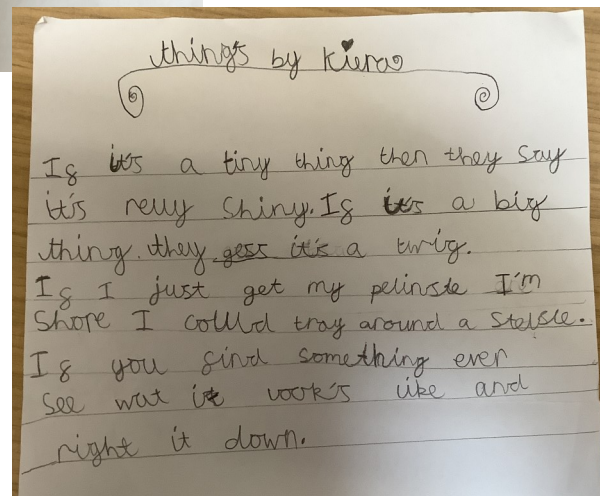 things by Kiera
If it's a tiny thing then they say
it's relly shiny. If it's a big
thing. they gess it's a twig.
If I just get my pelinste I'm
Shore I collld tray around a stelsle.
If you find something ever
see wat it look's like and
right it down.